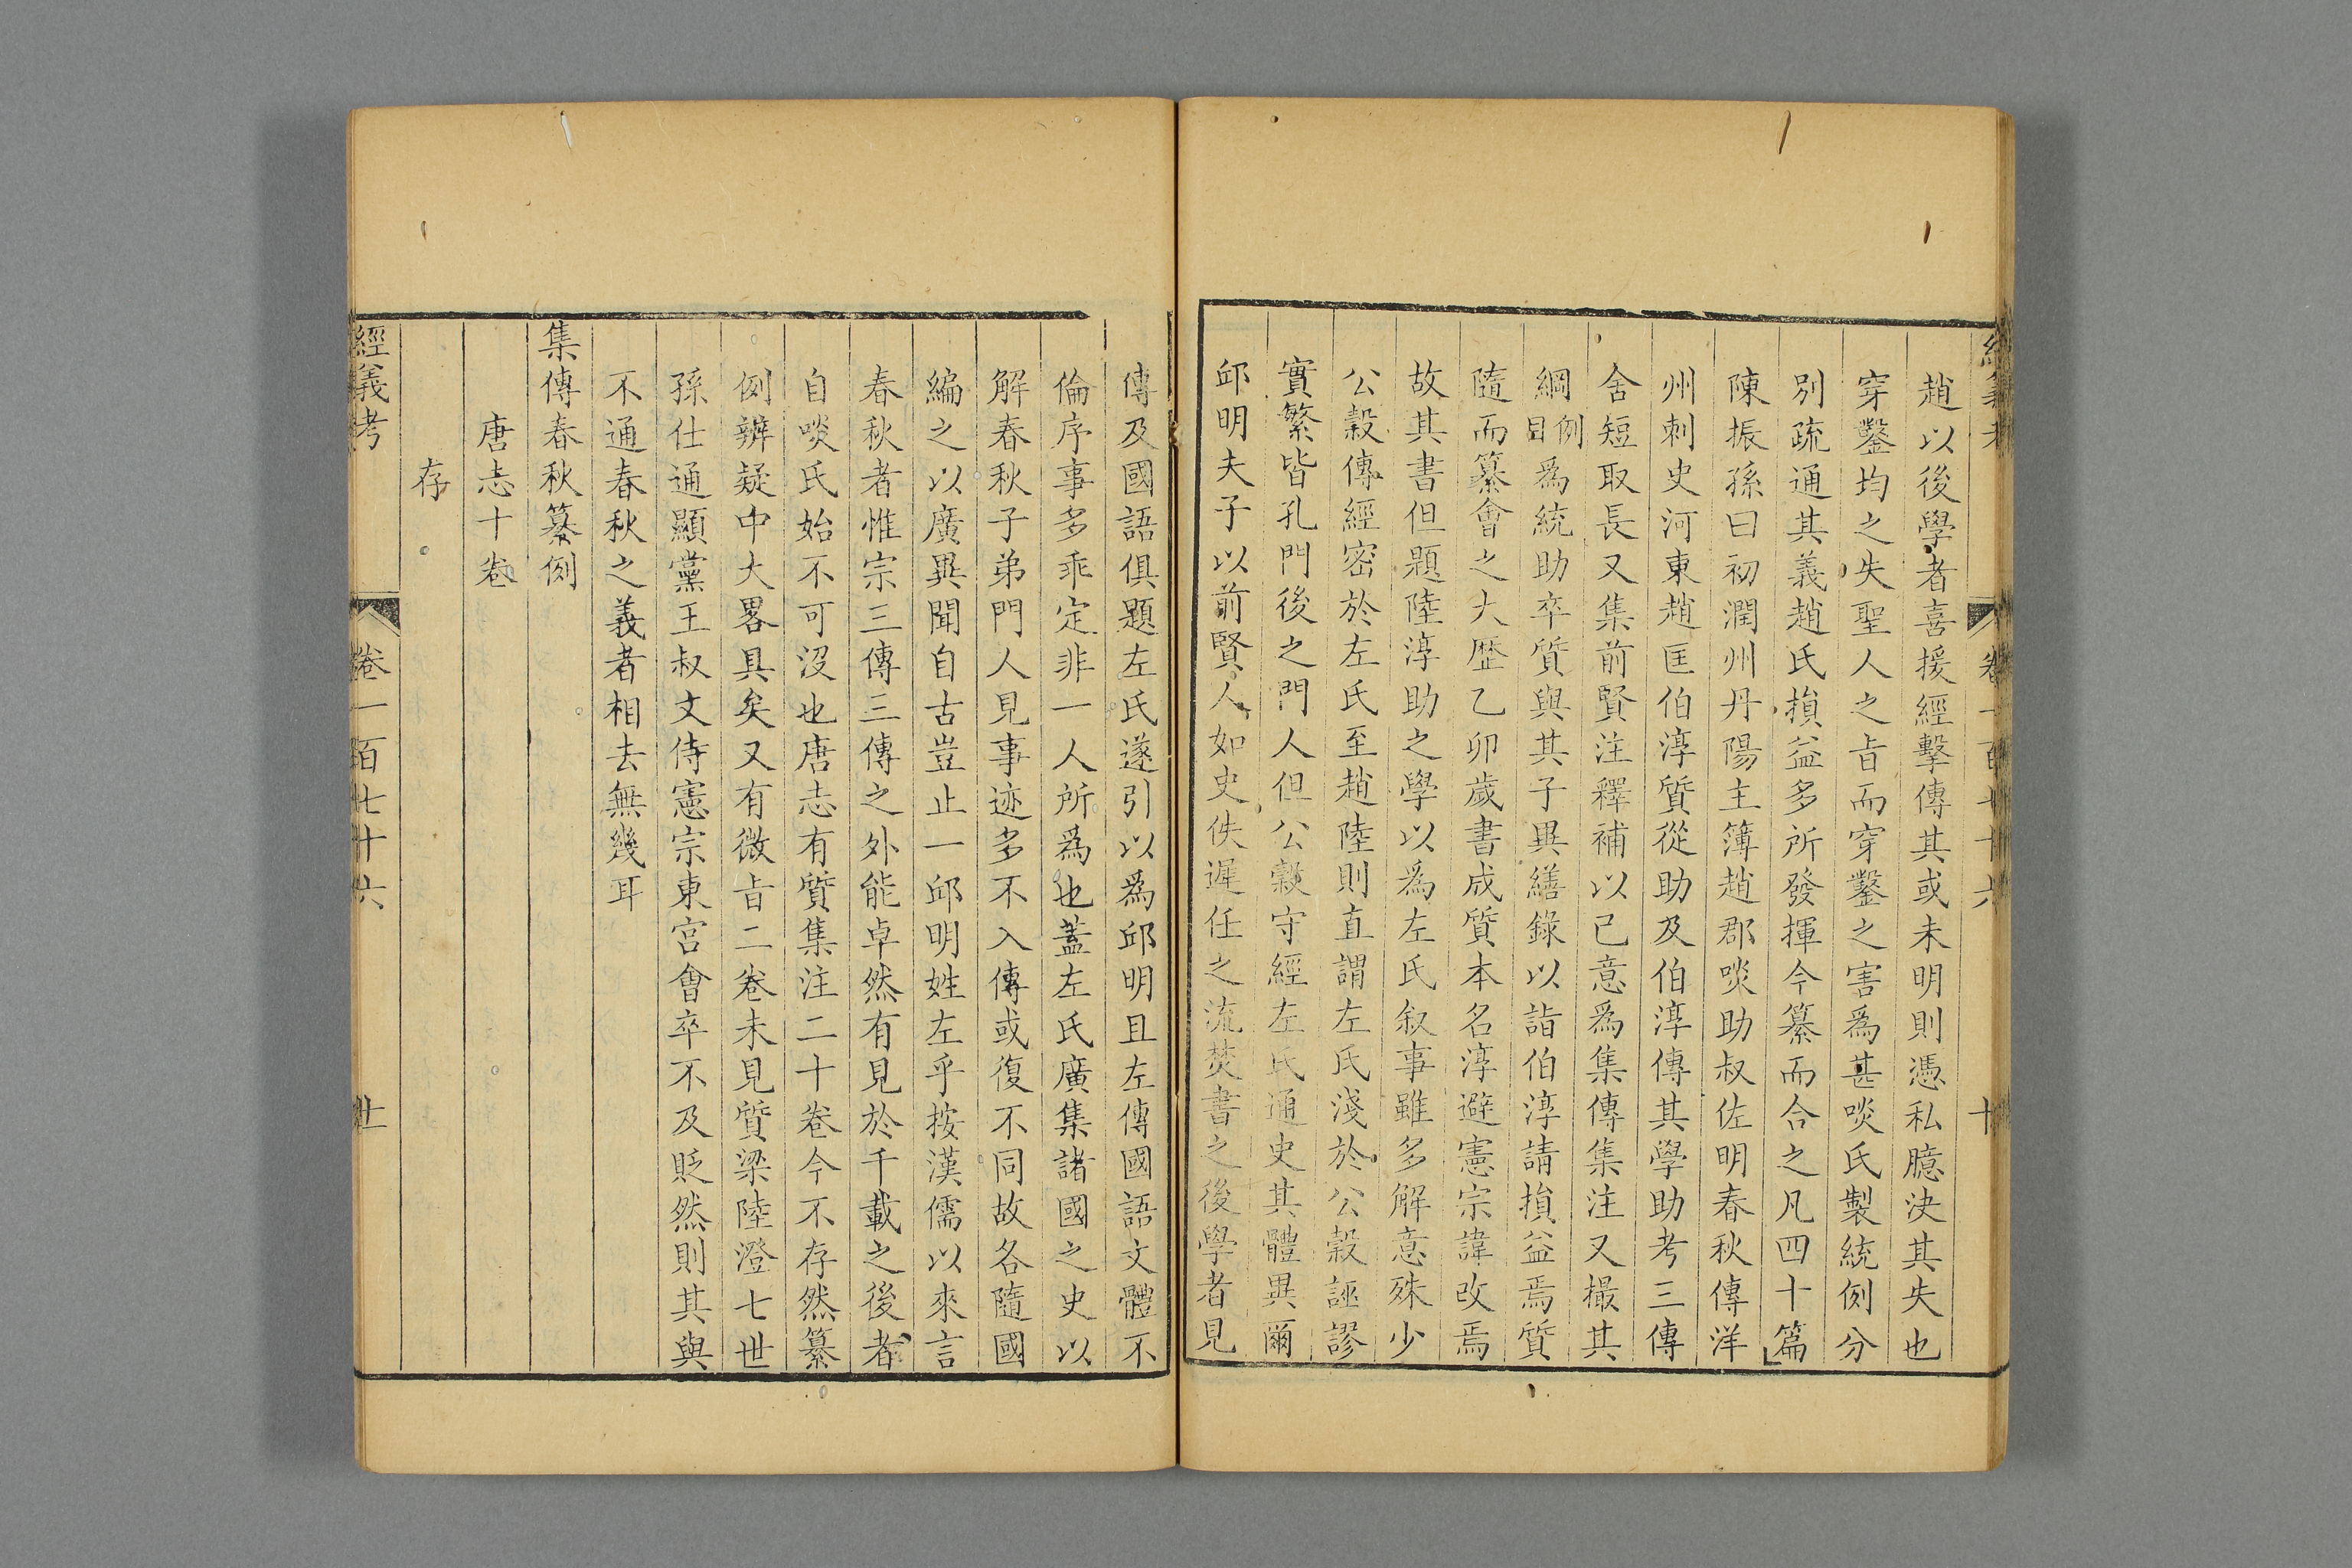 趙以後學者喜援經擊傳其或未明則憑私臆決其失也
穿鑿均之失聖人之旨而穿鑿之害爲甚啖氏製統例分
別疏通其義趙氏損益多所發揮今纂而合之凡四十篇
陳振孫曰初潤州丹陽主簿趙郡啖助叔佐明春秋傳洋
州刺史河東趙匡伯淳質從助及伯淳傳其學助考三傳
舍短取長又集前賢注釋補以己意爲集傳集注又撮其
綱例目爲統助卒質與其子異繕錄以詣伯淳請損益焉質
隨而纂會之大歷乙卯歲書成質本名淳避憲宗諱改焉
故其書但題陸淳助之學以爲左氏叙事雖多解意殊少
公穀傳經密於左氏至趙陸則直謂左氏淺於公穀誣謬
實繁皆孔門後之門人但公穀守經左氏通史其體異爾
邱明夫子以前賢人如史佚遲任之流焚書之後學者見
傳及國語俱題左氏遂引以爲邱明且左傳國語文體不
倫序事多乖定非一人所爲也蓋左氏廣集諸國之史以
解春秋子弟門人見事迹多不入傳或復不同故各隨國
編之以廣異聞自古豈止一邱明姓左乎按漢儒以來言
春秋者惟宗三傳三傳之外能卓然有見於千載之後者
自啖氏始不可沒也唐志有質集注二十卷今不存然纂
例辨疑中大畧具矣又有微旨二卷未見質梁陸澄七世
孫仕通顯黨王叔文侍憲宗東宮會卒不及貶然則其與
不通春秋之義者相去無幾耳
集傳春秋纂例
唐志十卷
存
經義考　卷一百七十六　十一